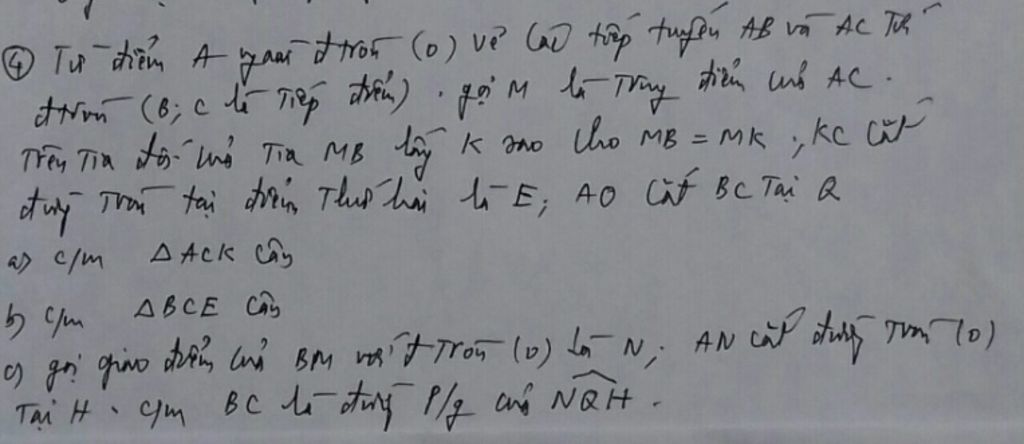 ④ Từ điểm A ngoài đtròn (O) vẽ các tiếp tuyến AB và AC tới
đtròn (B; C là tiếp điểm). gọi M là trung điểm của AC.
Trên tia đối của tia MB lấy K sao cho MB = MK; KC cắt
đường tròn tại điểm thứ hai là E; AO cắt BC tại Q
a) c/m △ACK cân
b) c/m △BCE cân
c) gọi giao điểm của BM với đtròn (O) là N; AN cắt đường tròn (O)
tại H. c/m BC là đường p/g của \widehat{NQH}.